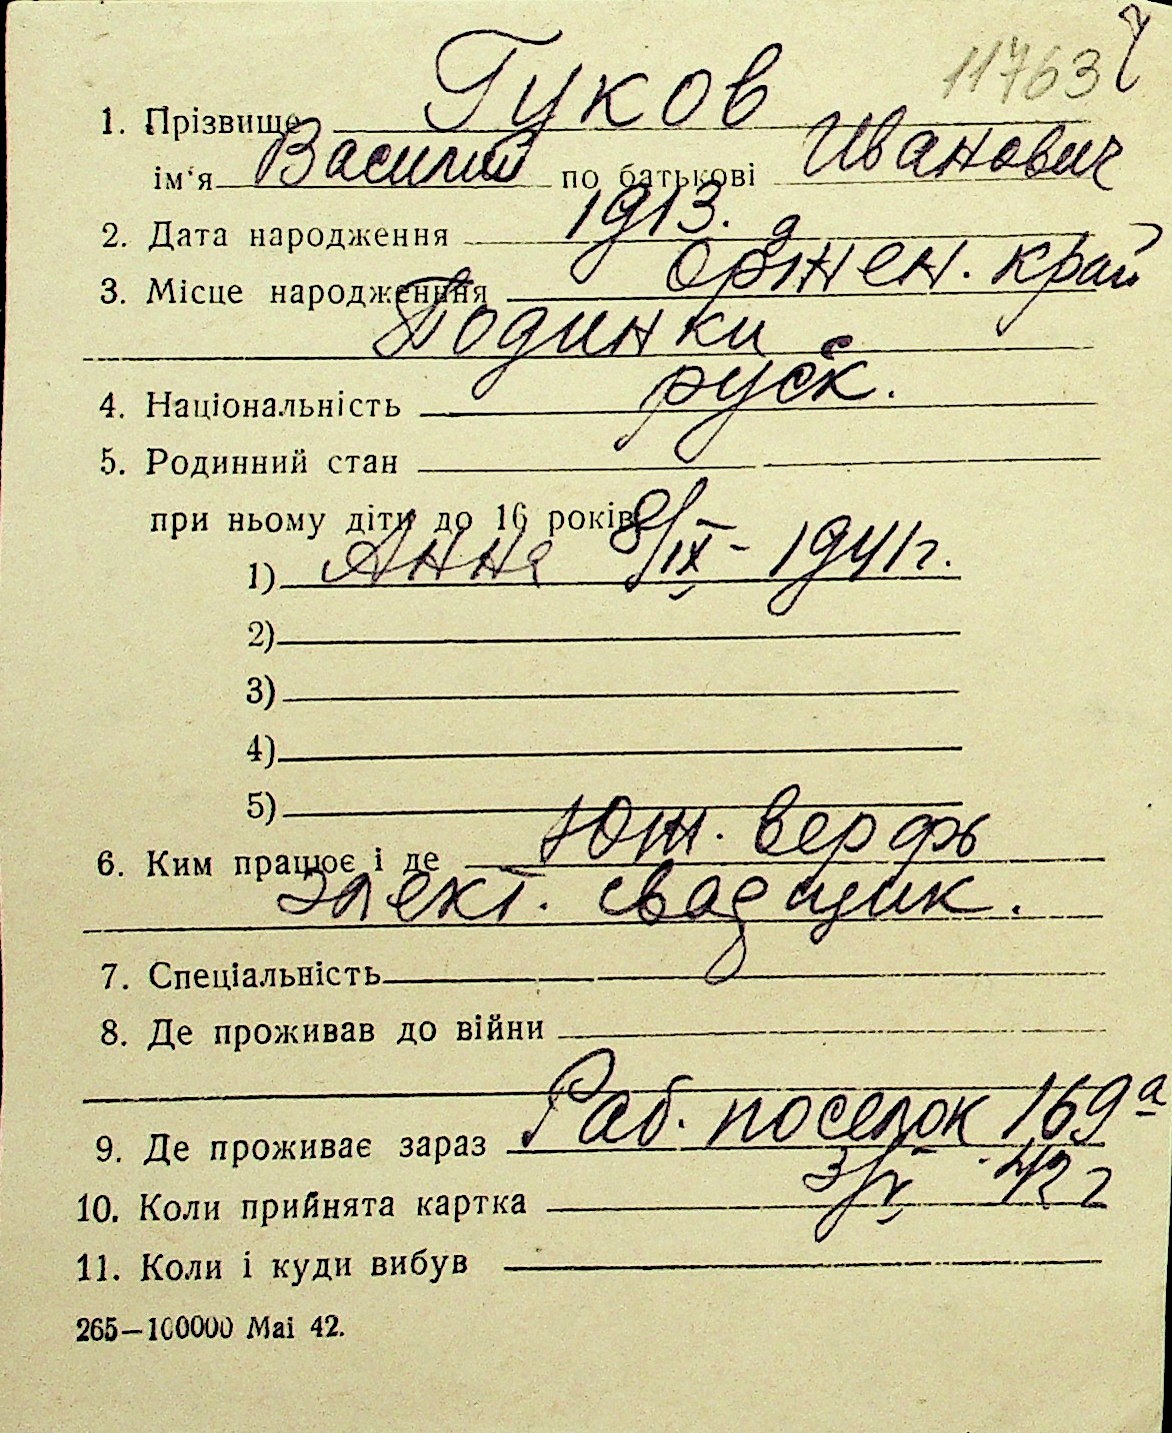 11763
1. Прізвище Гуков
ім'я Василий по батькові Иванович
2. Дата народження 1913.
3. Місце народженння Оржен. край
Родинки
4. Національність русск.
5. Родинний стан
при ньому діти до 16 років
1) Анна 8/IX - 1941 г.
2)
3)
4)
5)
6. Ким працює і де Юж. верфь
элект. сварщик.
7. Спеціальність
8. Де проживав до війни
9. Де проживає зараз Раб. поселок 169а
10. Коли прийнята картка 42 г
11. Коли і куди вибув
265—100000 Mai 42.